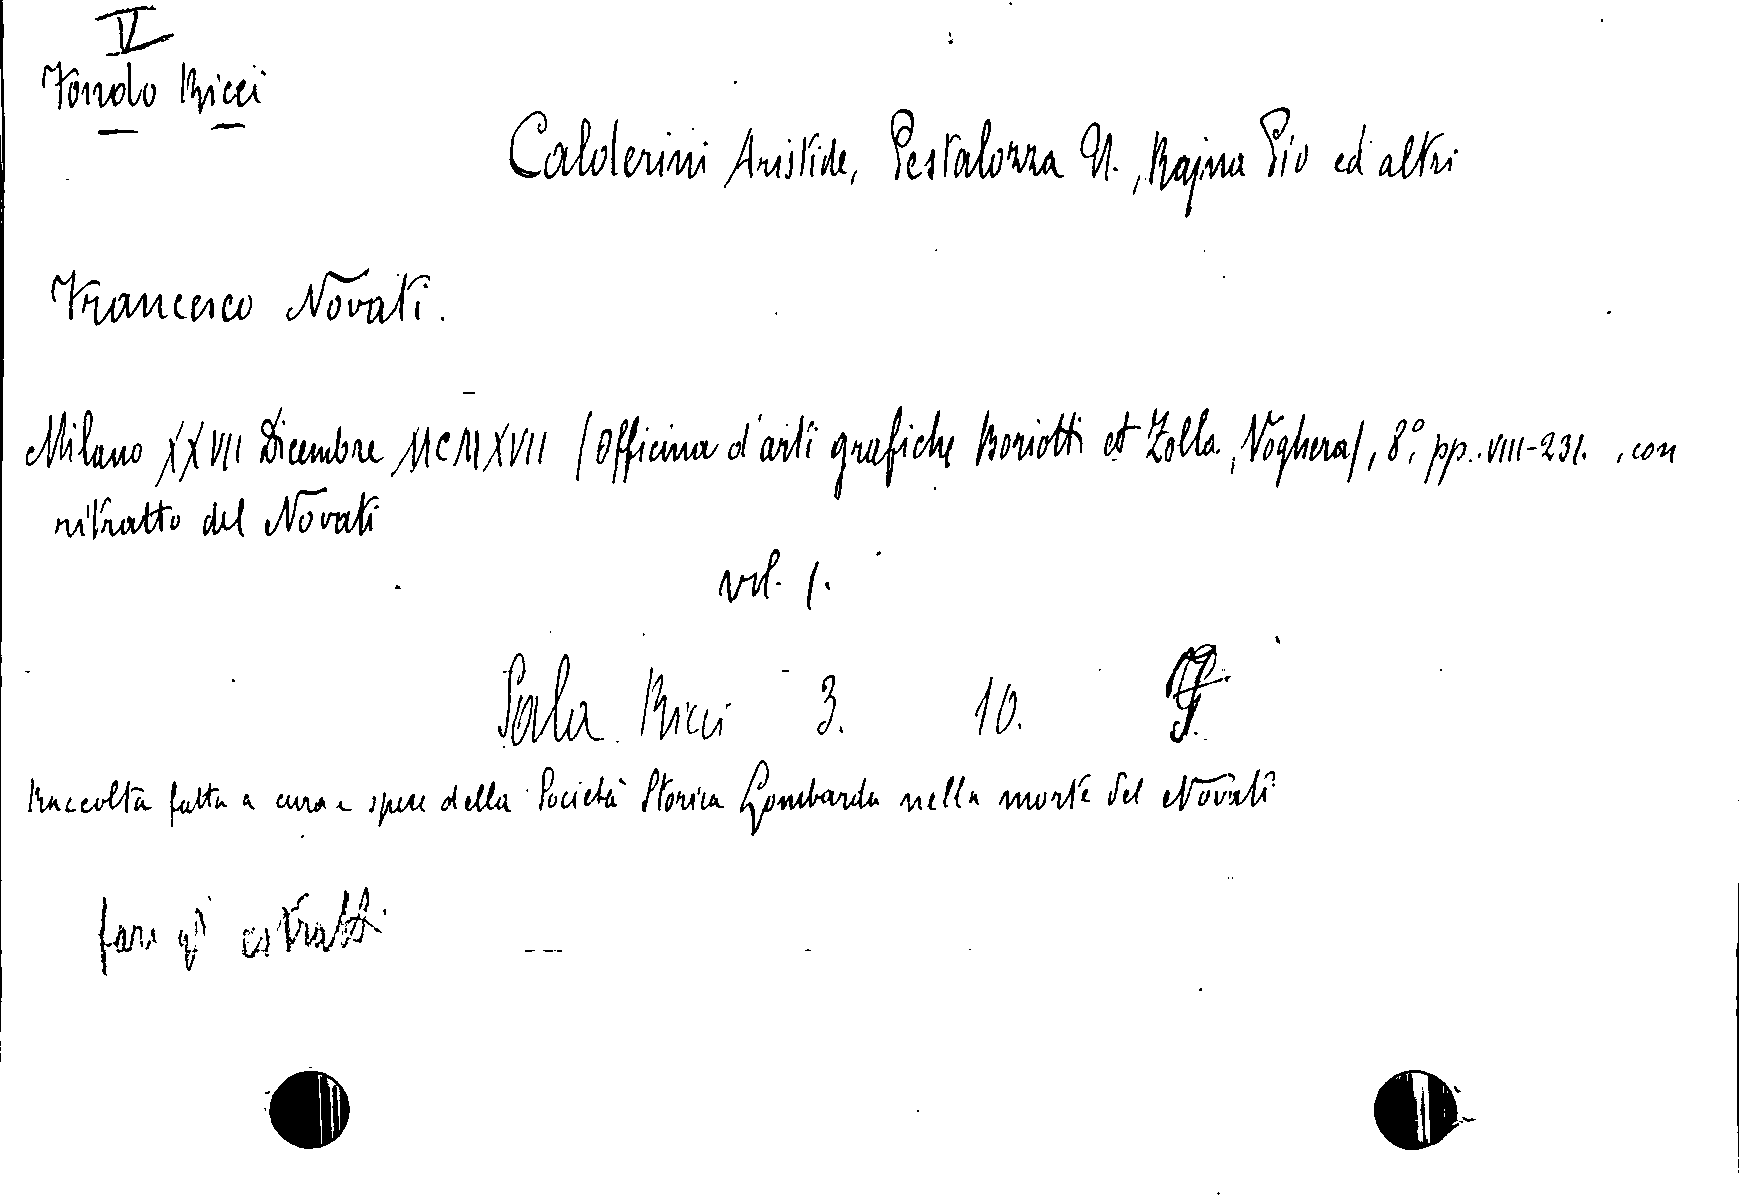 IV
Fondo Ricci
Calderini Aristide, Pestalozza U., Rajna Pio ed altri
Francesco Novati.
Milano XXVII Dicembre MCMXVII (Officina d'arti grafiche Boriotti et Zolla, Voghera), 8°, pp. VIII-231. , con
ritratto del Novati
vol. 1.
Sala Ricci 3. 10.
Raccolta fatta a cura e spese della Società Storica Lombarda nella morte del Novati
fare gl' estratti